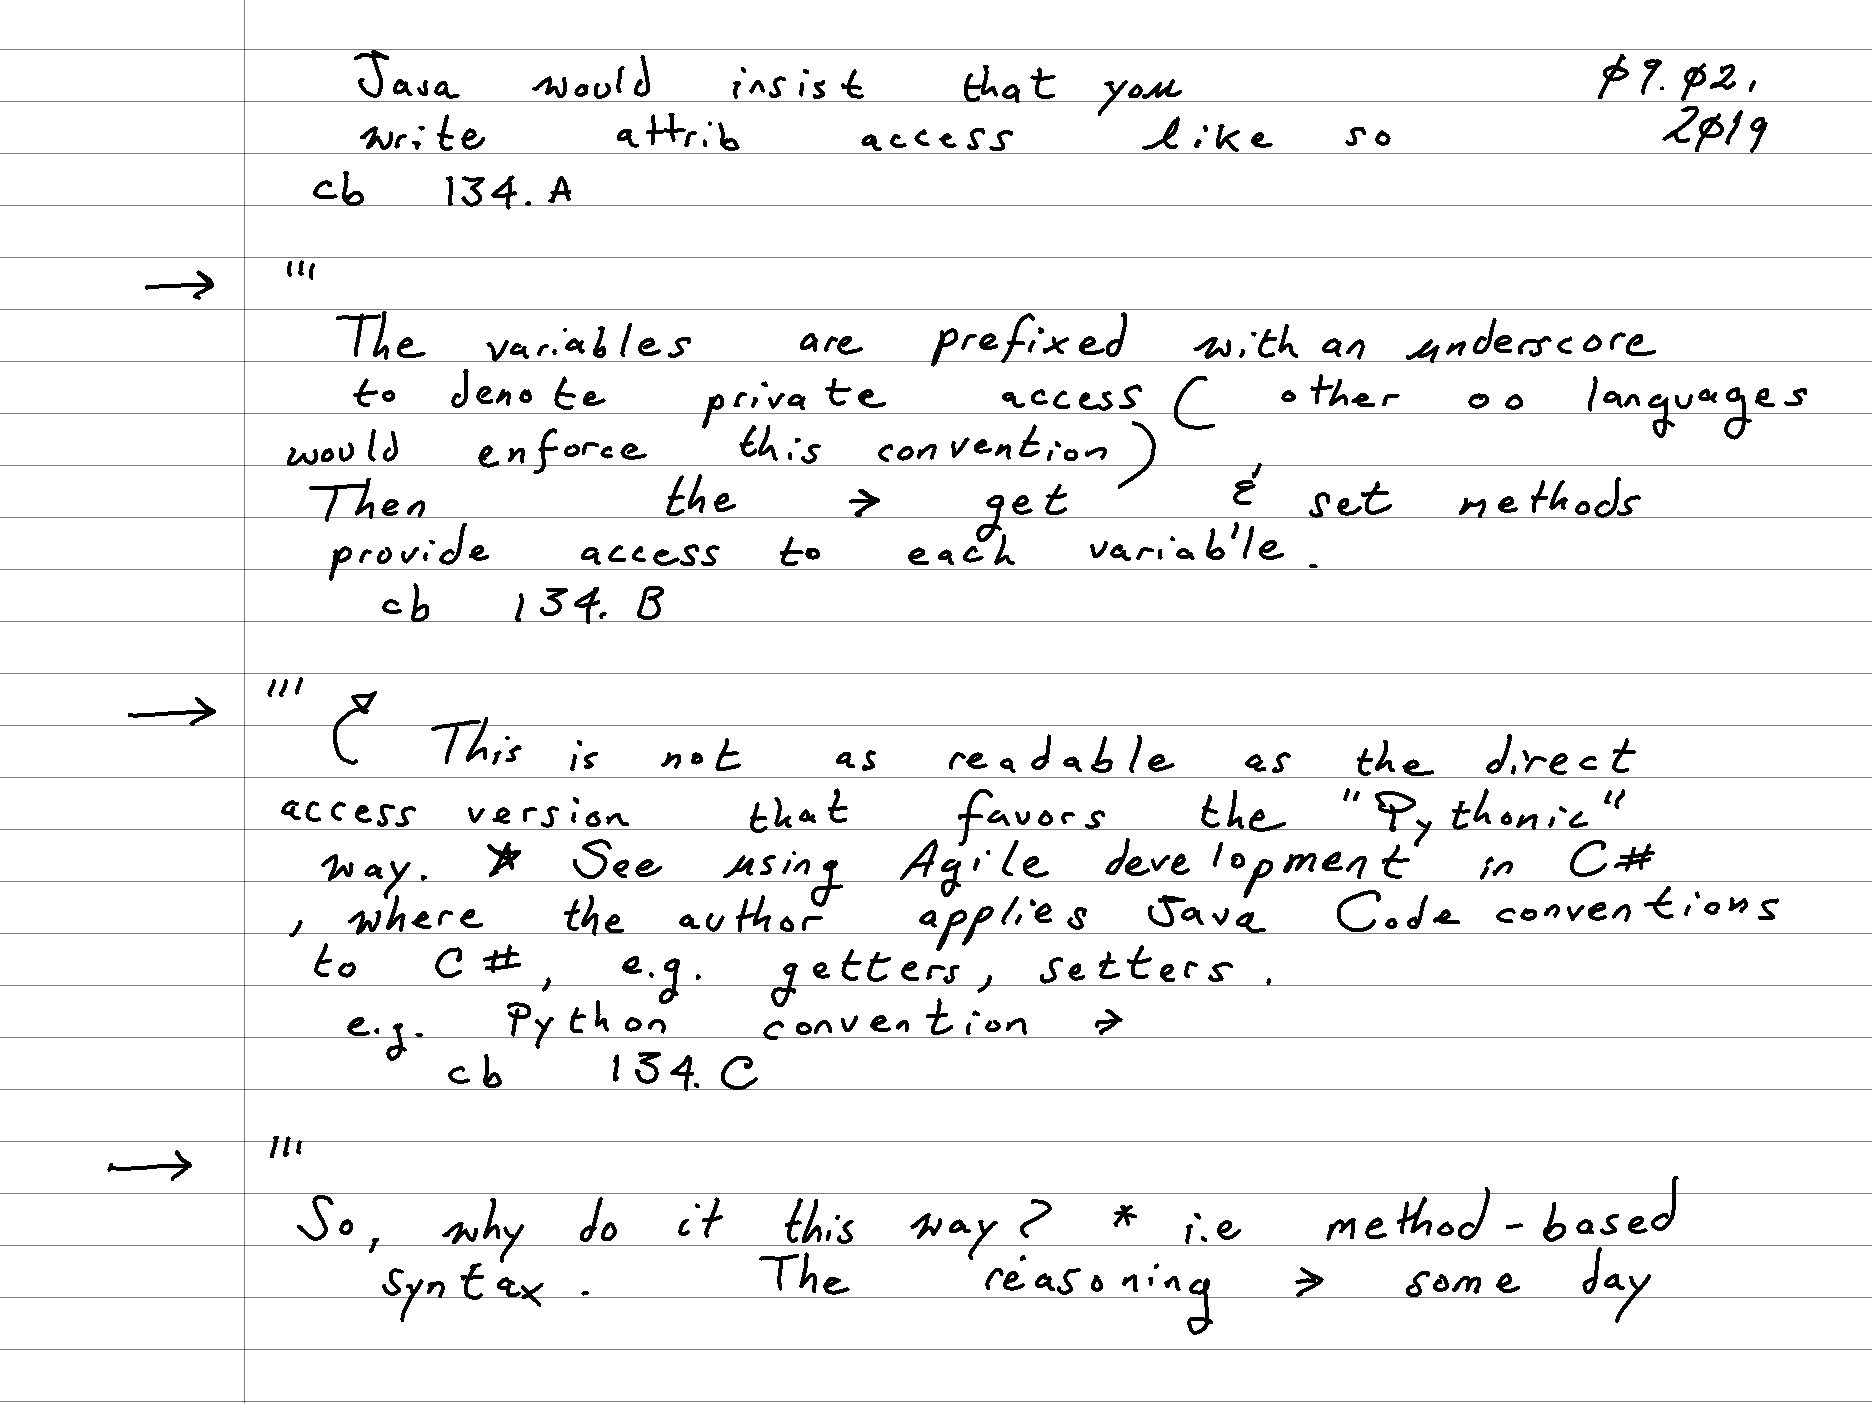 Java would insist that you ø9.ø2,
write attrib access like so 2ø19
cb 134.A
→ '''
The variables are prefixed with an underscore
to denote private access ( other oo languages
would enforce this convention)
Then the → get & set methods
provide access to each variable.
cb 134.B
→ '''
This is not as readable as the direct
access version that favors the "Pythonic"
way. * See using Agile development in C#
, where the author applies Java Code conventions
to C#, e.g. getters, setters.
e.g. Python convention →
cb 134.C
→ '''
So, why do it this way? * i.e method-based
syntax. The reasoning → some day